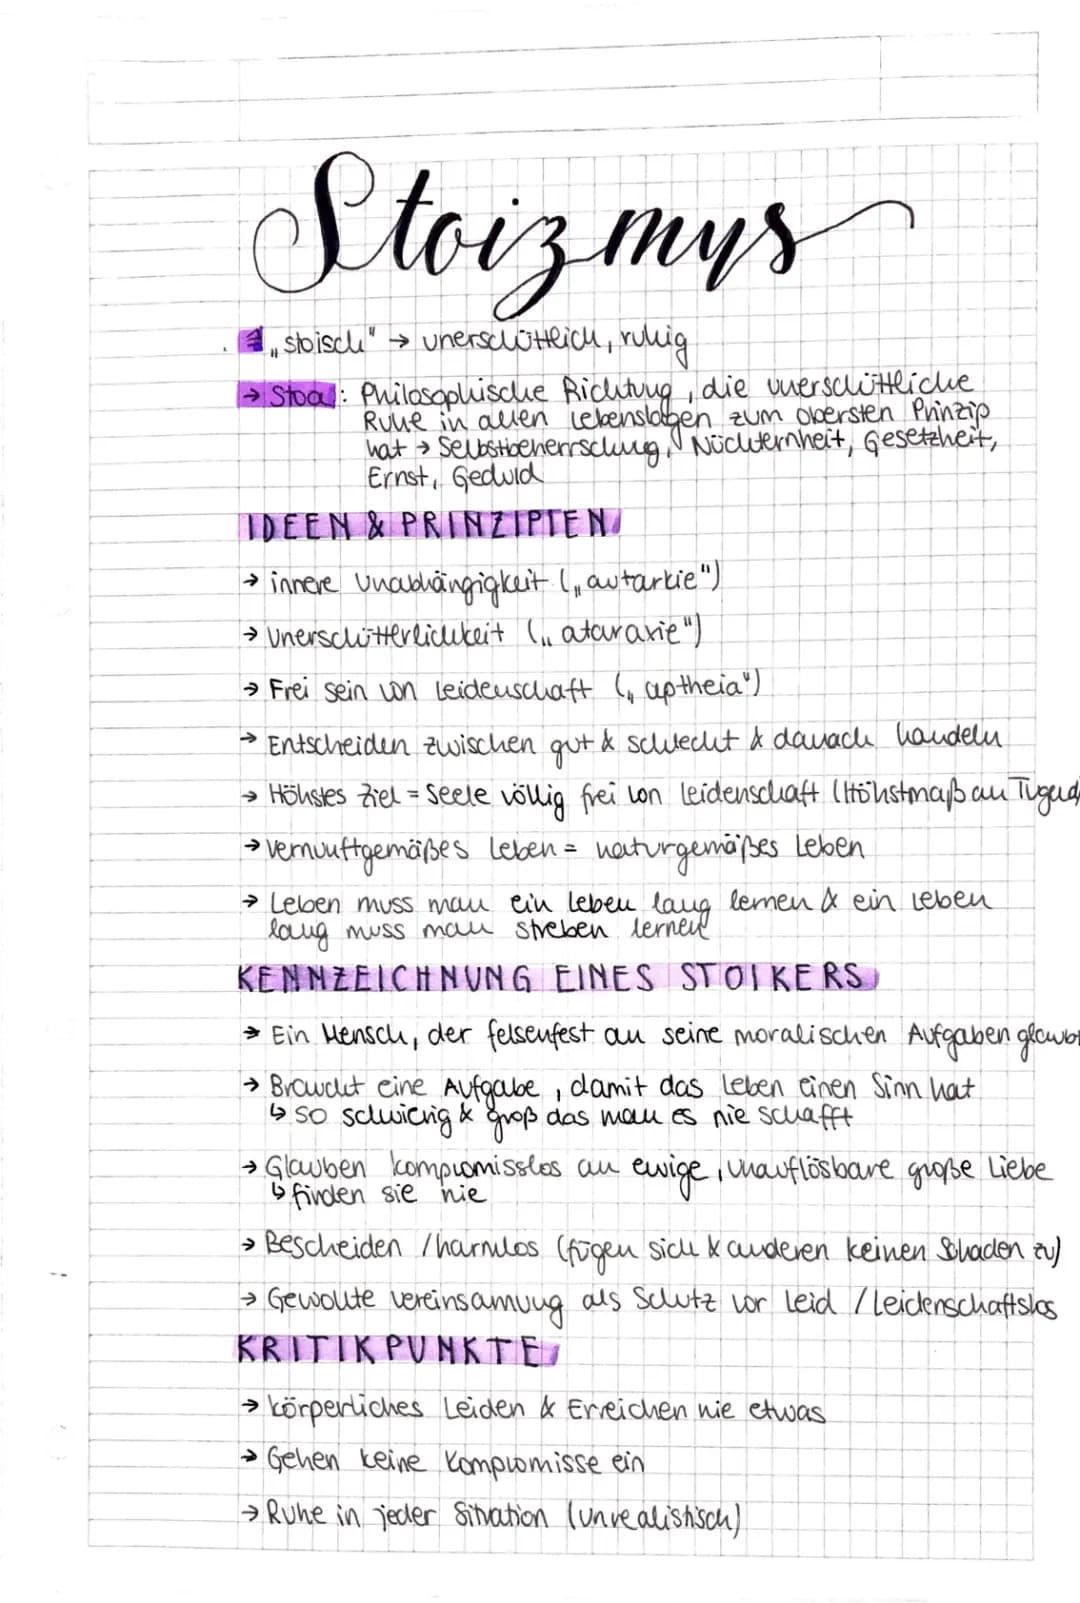 Stoizmus
„stoisch" → unerschüttlich, ruhig
→ Stoa: Philosophische Richtung, die unerschüttliche
Ruhe in allen Lebenslagen zum obersten Prinzip
hat → Selbstbeherrschung, Nüchternheit, Gesetzheit,
Ernst, Geduld
IDEEN & PRINZIPIEN
→ innere Unabhängigkeit („autarkie")
→ Unerschütterlichkeit („ataraxie")
→ Frei sein von Leidenschaft („aptheia")
→ Entscheiden zwischen gut & schlecht & danach handeln
→ Höhstes Ziel = Seele völlig frei von Leidenschaft (Höhstmaß an Tugend
→ Vernunftgemäßes Leben = naturgemäßes Leben
→ Leben muss man ein Leben lang lernen & ein Leben
lang muss man streben lernen
KENNZEICHNUNG EINES STOIKERS
→ Ein Mensch, der felsenfest an seine moralischen Aufgaben glaubt
→ Braucht eine Aufgabe, damit das Leben einen Sinn hat
↳ so schwierig & groß das man es nie schafft
→ Glauben kompromisslos an ewige, unauflösbare große Liebe
↳ finden sie nie
→ Bescheiden / harmlos (fügen sich & anderen keinen Schaden zu)
→ Gewollte Vereinsamung als Schutz vor Leid / Leidenschaftslos
KRITIKPUNKTE
→ körperliches Leiden & Erreichen nie etwas
→ Gehen keine Kompromisse ein
→ Ruhe in jeder Situation (unrealistisch)